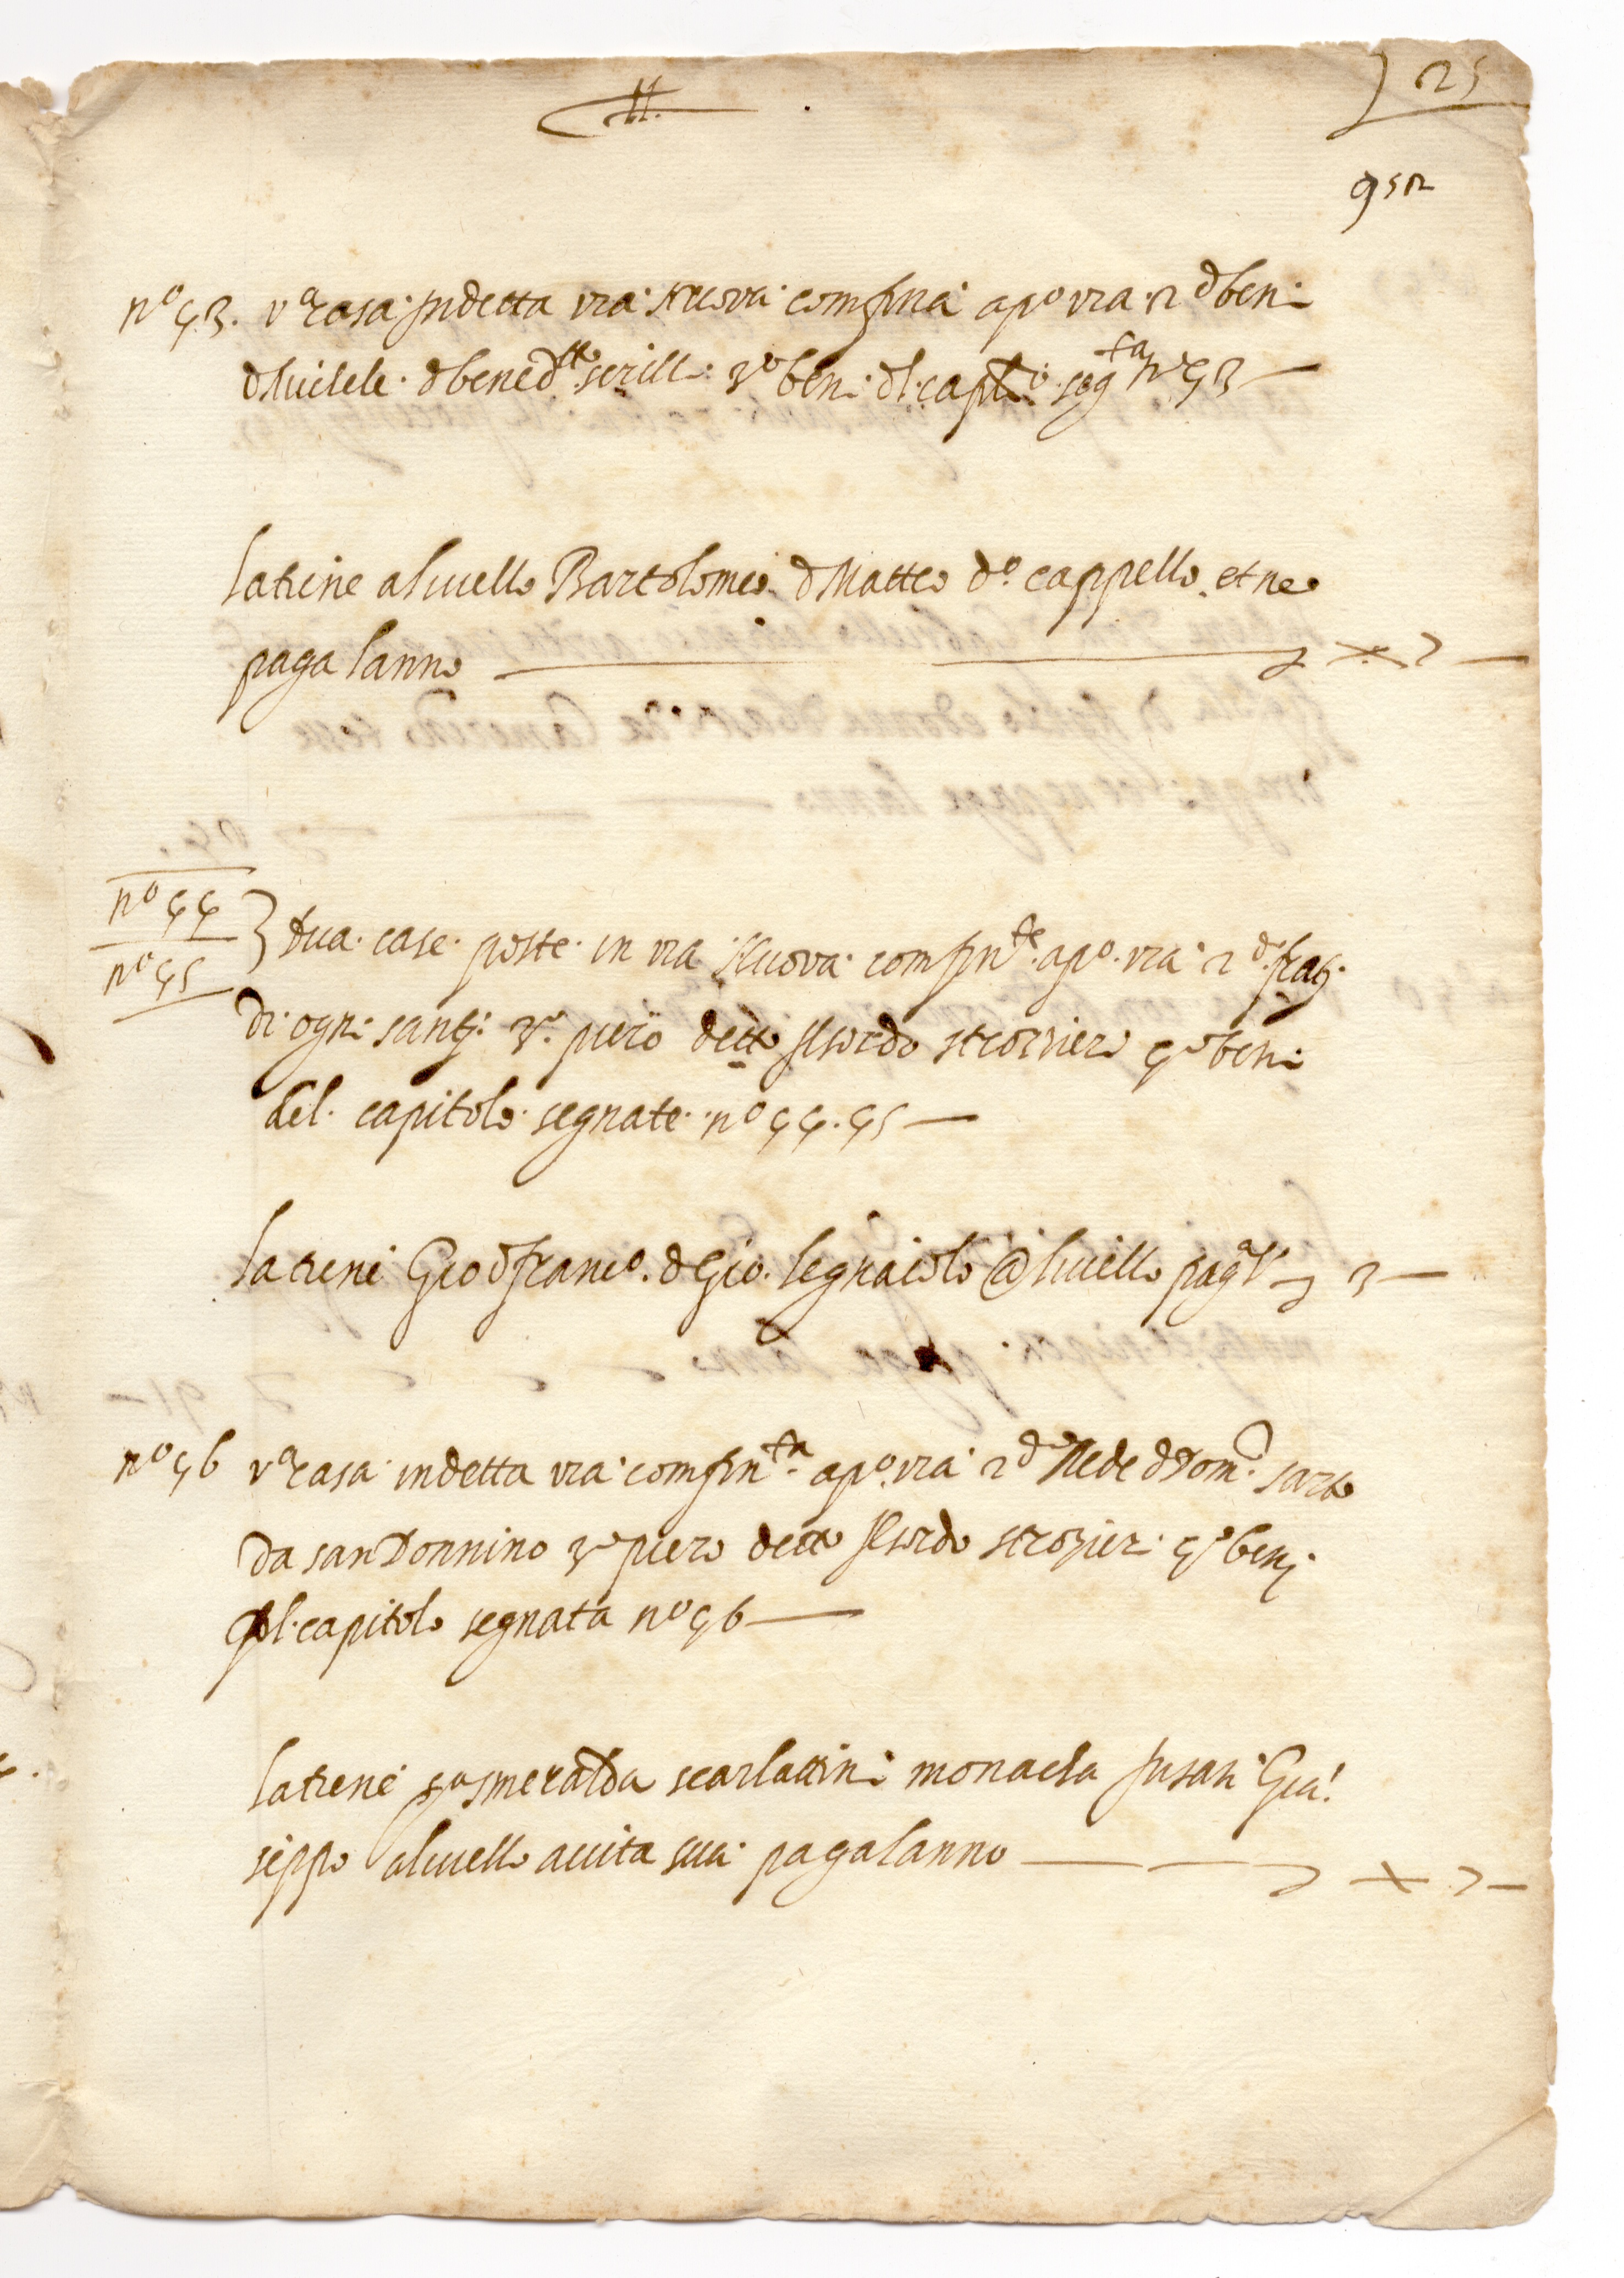 25
952
nº 43. vª casa indetta via nuova confina apº via 2 d beni
d benedtto 3º beni dl. captº segta nº 43 —
latiene alivello Bartolomeo d Matteo dº cappello et ne
paga lanno — 7 —
nº 44
nº 45
dua case poste in via Nuova confinte apº via 2d frati
di ogni santi 3º piero detto ilsordo strozieri 4º beni
del capitolo segnate nº 44. 45 —
latiene Gio d francº. d Gio. legnaiolo @ livello pagª 3 —
nº 46 vª casa indetta via confinta apº via 2d Rede d Domº sarto
da san Donnino 3º piero detto ilsordo strozieri 4º beni
del capitolo segnata nº 46 —
latiene smeralda scarlattini monacha in san Giu
seppo alivello avita sua paga lanno — 7 —